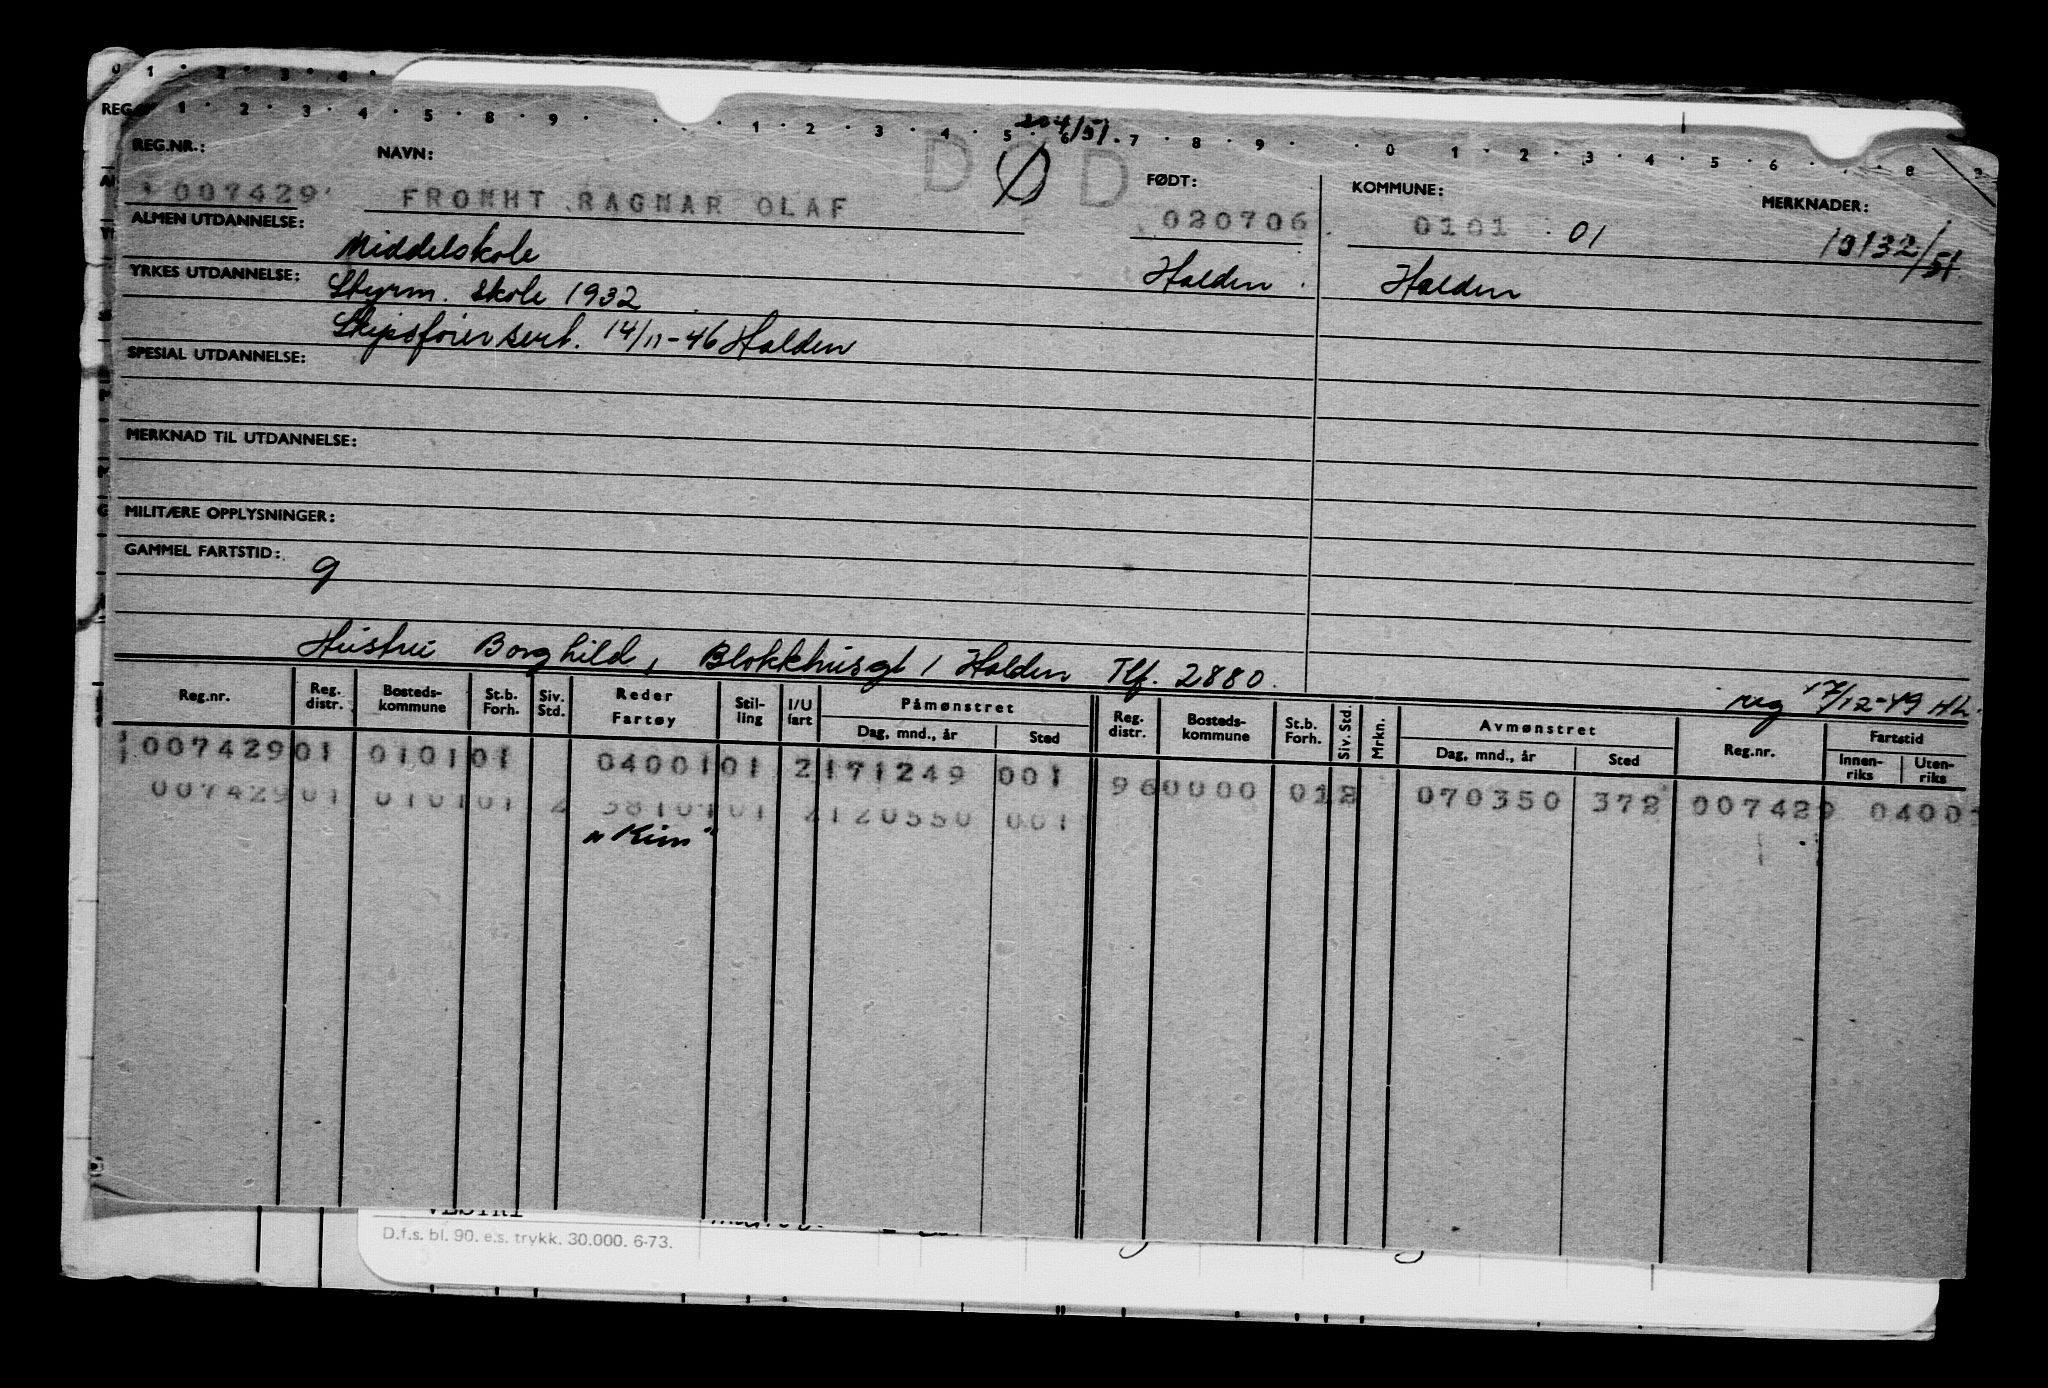 REG.NR.:
NAVN:
FØDT:
KOMMUNE:
MERKNADER:
DØD
007429
FROMHT RAGNAR OLAF
020706
0101 01
10132/51
ALMEN UTDANNELSE:
Middelskole
Halden
Halden
YRKES UTDANNELSE:
Styrm. skole 1932
Skipsfører sert. 14/11-46 Halden
SPESIAL UTDANNELSE:
MERKNAD TIL UTDANNELSE:
MILITÆRE OPPLYSNINGER:
GAMMEL FARTSTID:
9
Hustru Borghild, Blokkhusgt 1 Halden Tlf. 2880.
reg 17/12-49
Reg.nr. Reg. distr. Bosteds-kommune St.b. Forh. Siv. Std. Reder Fartøy Stil-ling I/U fart Påmønstret Dag, mnd., år Sted Reg. distr. Bosteds-kommune St.b. Forh. Siv. Std. Mrkn. Avmønstret Dag, mnd., år Sted Reg.nr. Fartstid Innen-riks Uten-riks
007429 01 0101 01 04001 01 2 171249 001 96 0000 01 2 070350 372 007429 0400
007429 01 0101 01 2 38101 01 2 120550 001
"Kim"
D.f.s. bl. 90. e.s. trykk. 30.000. 6-73.